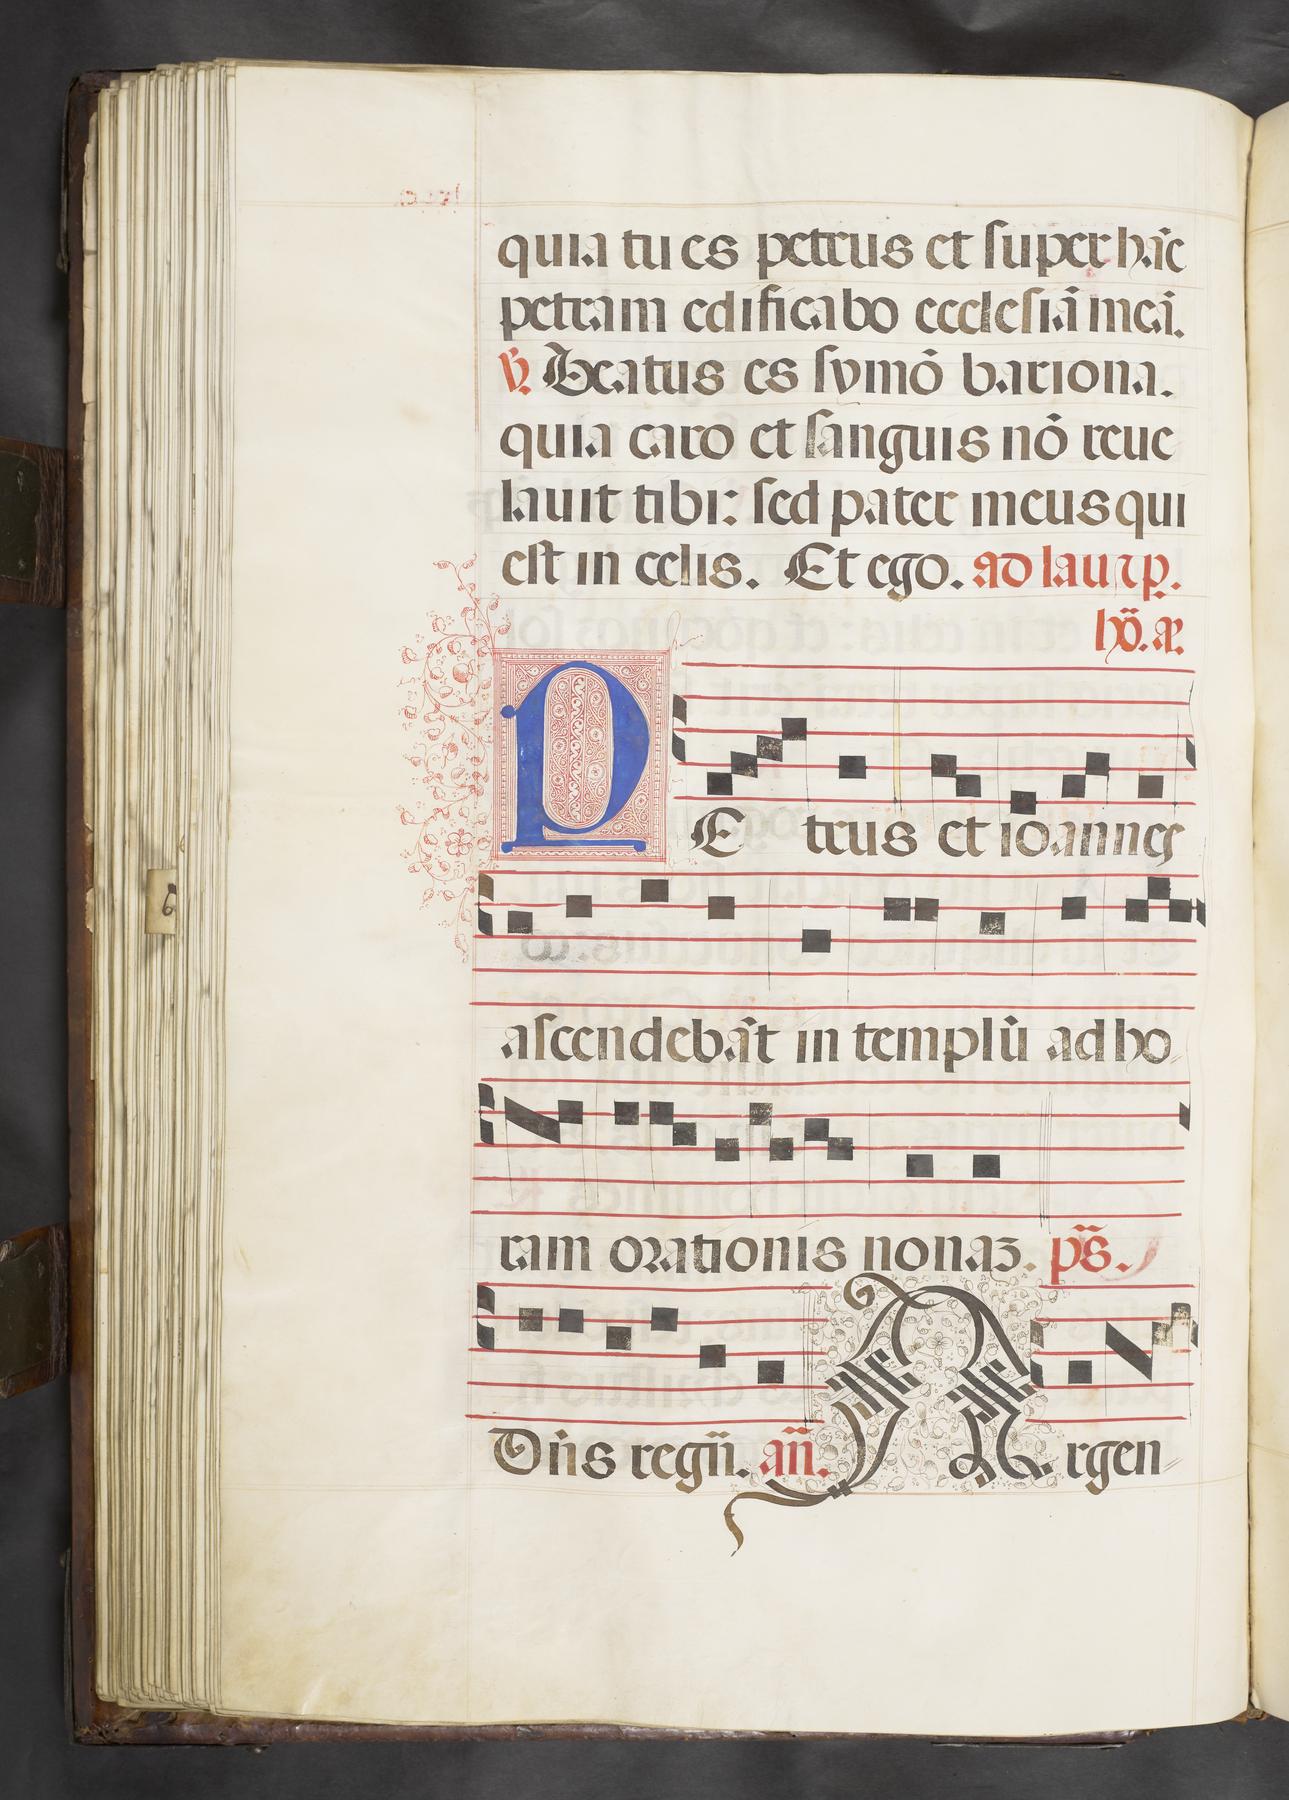 quia tu es petrus et super hāc
petram edificabo ecclesiā meā.
℣. Beatus es symō bariona.
quia caro et sanguis nō reue
lauit tibi: sed pater meus qui
est in celis. Et ego. ad lau
PEtrus et ioannes
ascendebāt in templū ad ho
ram orationis nonaꝫ. ps̄.
Dn̄s regn̄. an̄. Argen
6